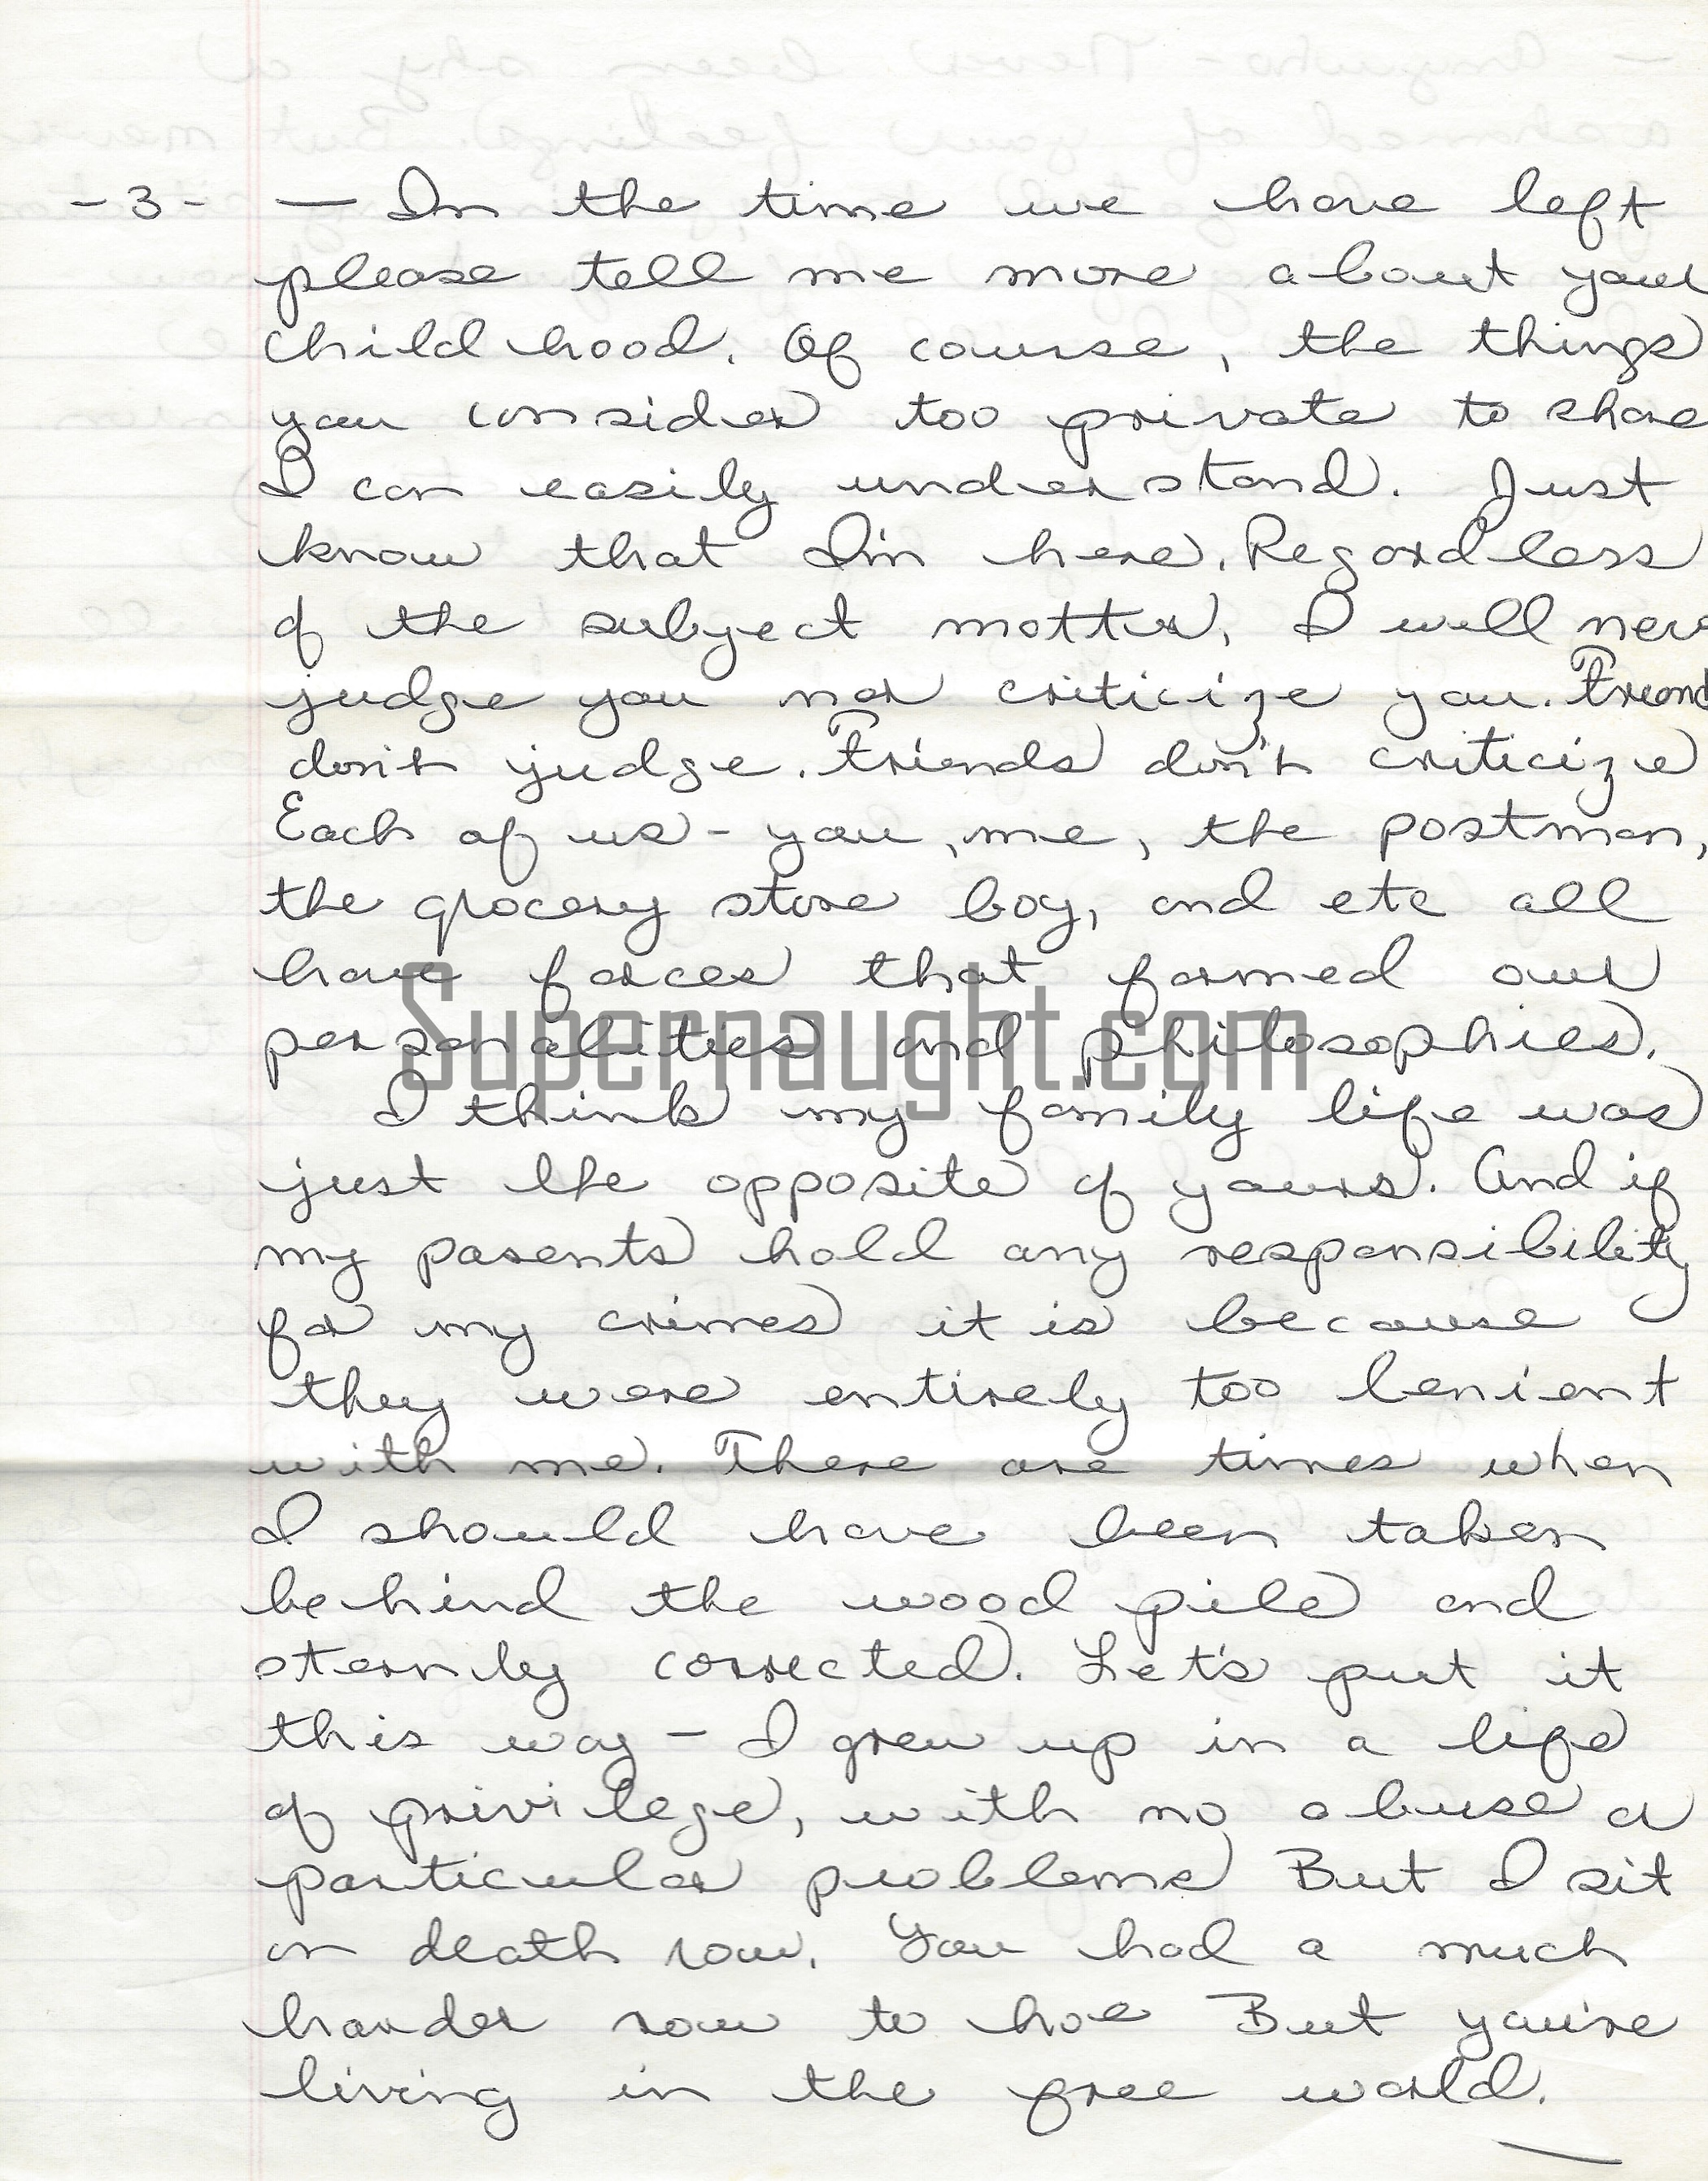 -3- — In the time we have left
please tell me more about your
childhood. Of course, the things
you consider too private to share
I can easily understand. Just
know that I'm here. Regardless
of the subject matter, I will nev
judge you nor criticize you. Friend
don't judge. Friends don't criticize
Each of us - you, me, the postman,
the grocery store boy, and etc all
have forces that formed our
personalities and philosophies.
Supernaught.com
I think my family life was
just the opposite of yours. And if
my parents hold any responsibility
for my crimes it is because
they were entirely too lenient
with me. There are times when
I should have been taken
behind the wood pile and
sternly corrected. Let's put it
this way - I grew up in a life
of privilege, with no abuse or
particular problems But I sit
on death row. You had a much
harder row to hoe But you're
living in the free world.